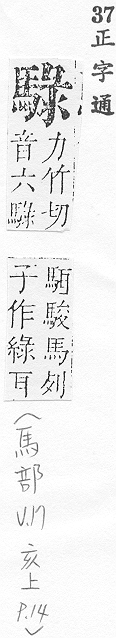 37
正字通
騄
力竹切
音六騄
駬駿馬列
子作綠耳
(馬部
V.17
亥上
P.14)